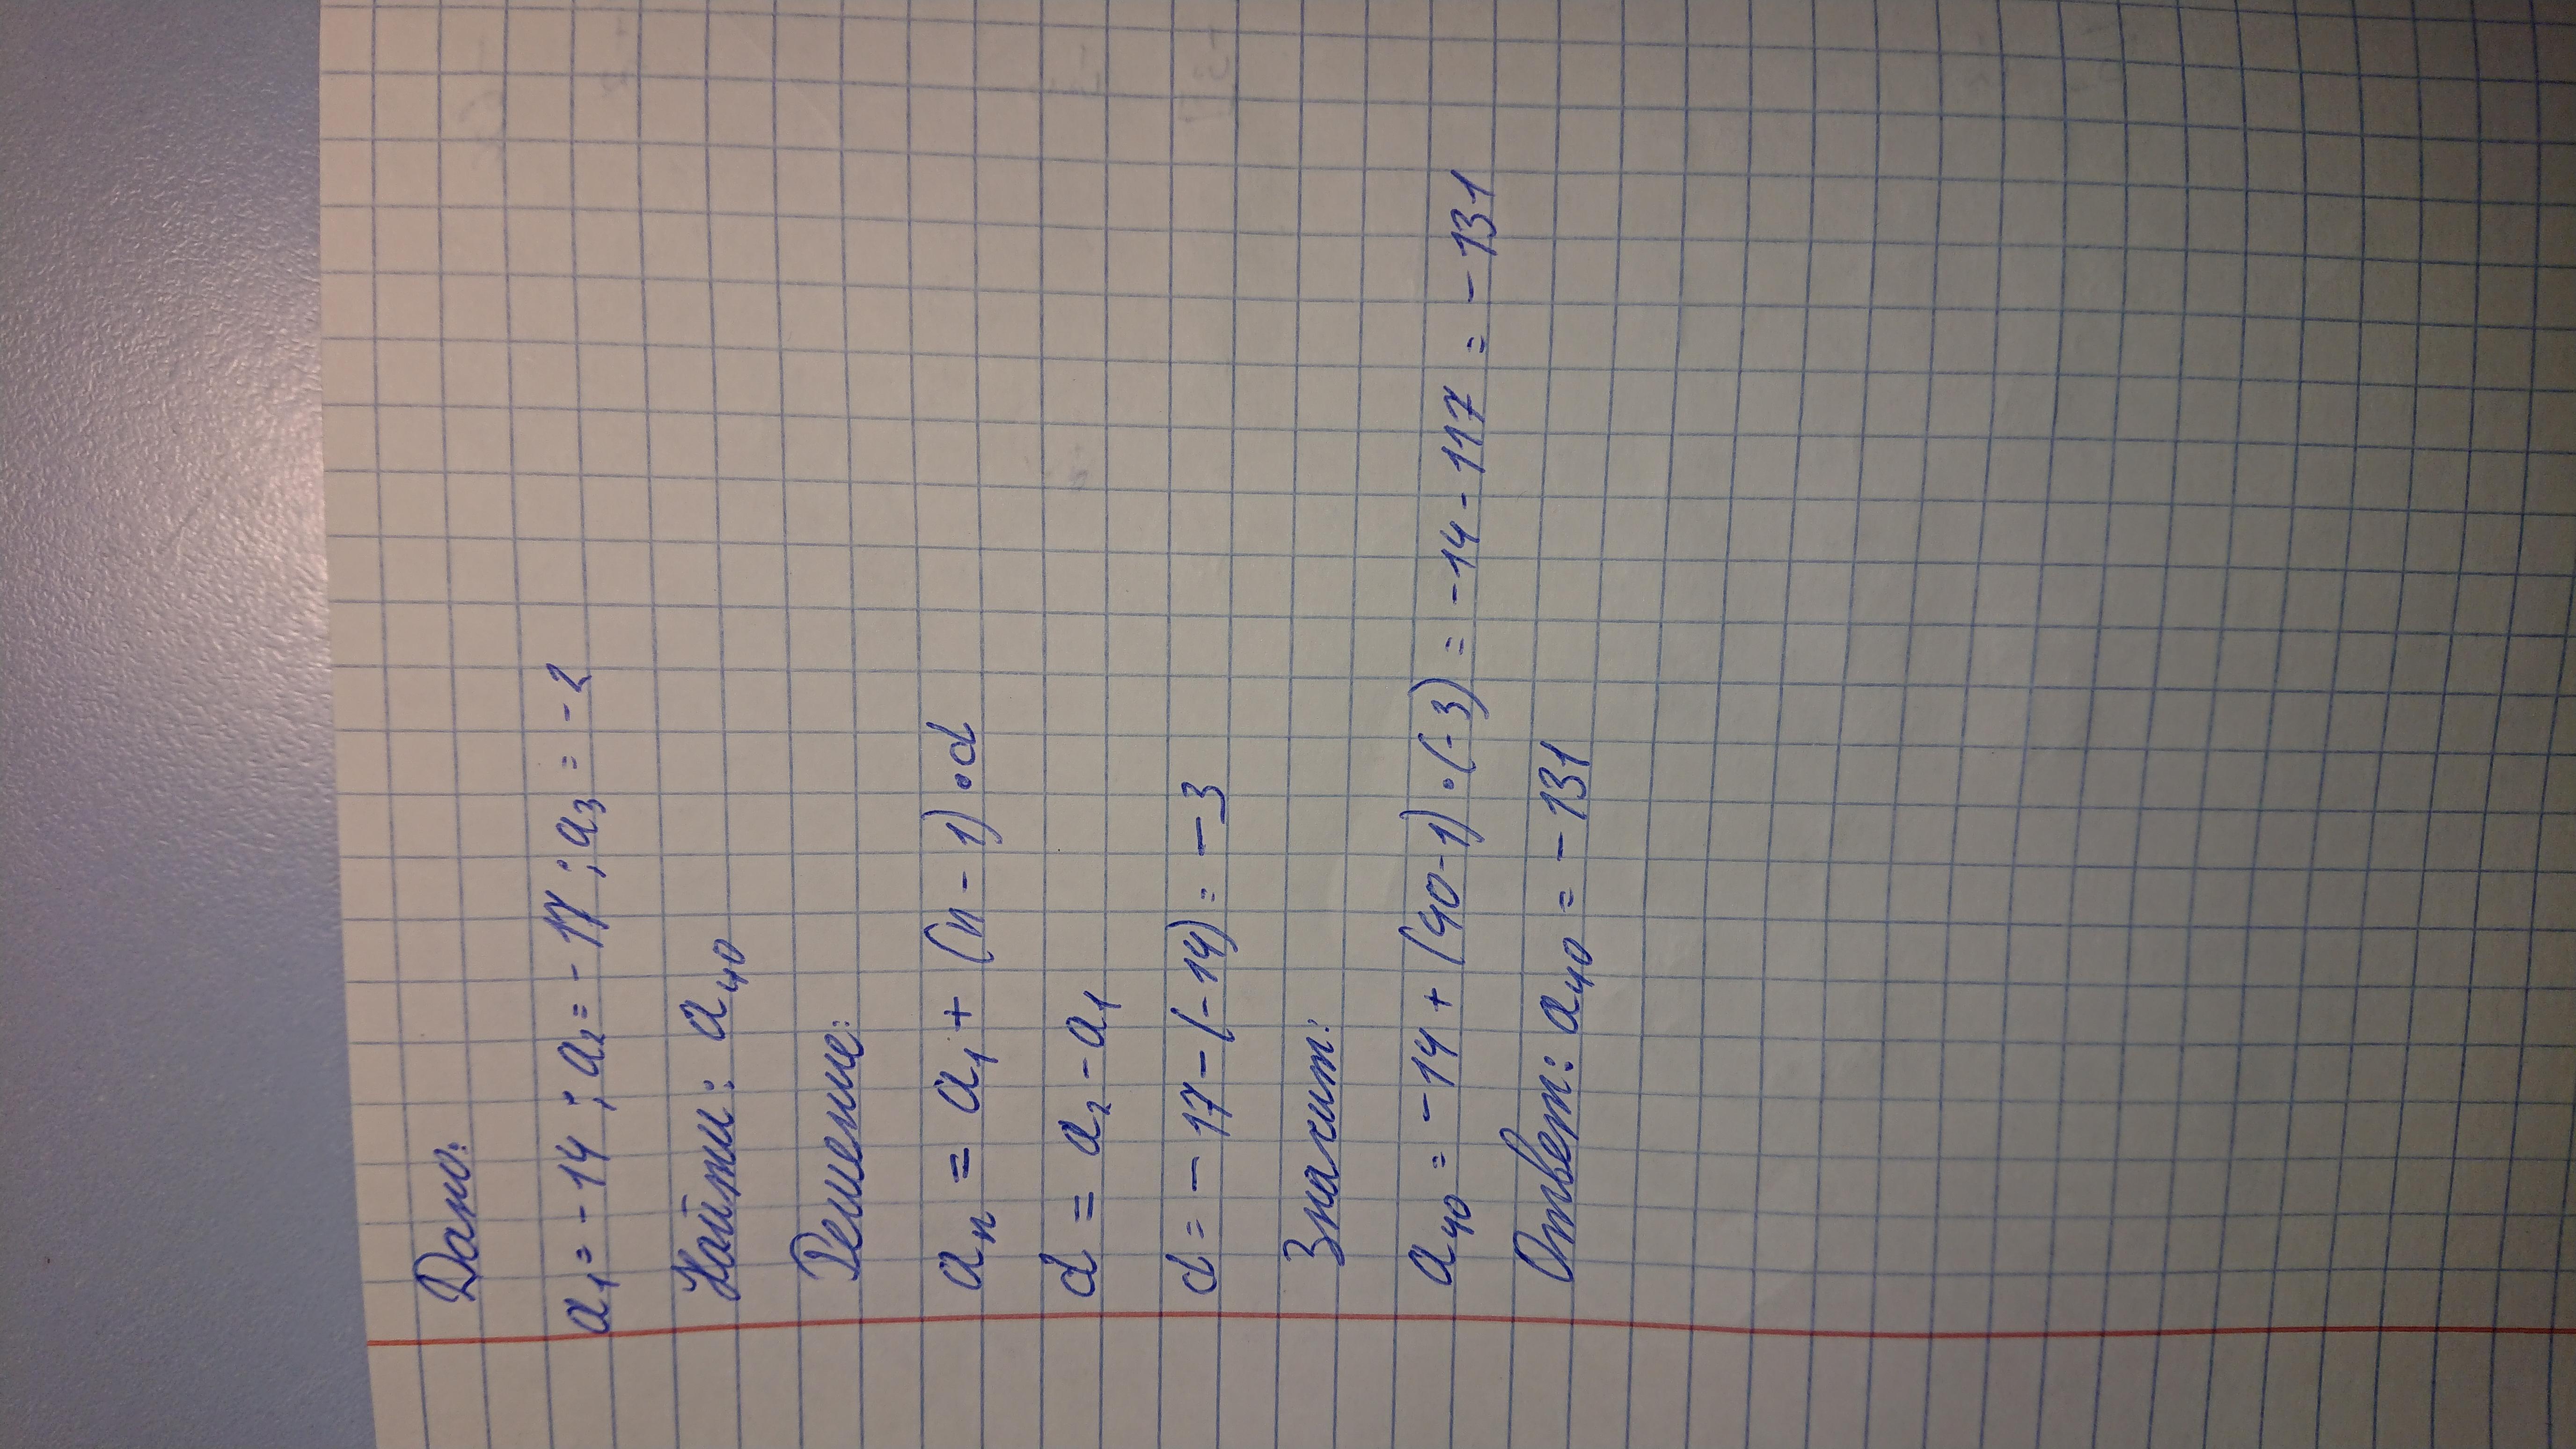 Дано:
a₁ = -14 ; a₂ = -17 ; a₃ = -2
Найти: a₄₀
Решение:
aₙ = a₁ + (n - 1) · d
d = a₂ - a₁
d = -17 - (-14) = -3
Значит:
a₄₀ = -14 + (40-1) · (-3) = -14 - 117 = -131
Ответ: a₄₀ = -131